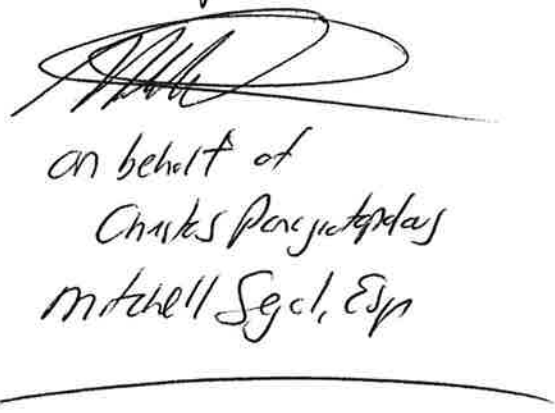 on behalf of
Christos
Mitchell Segal, Esq